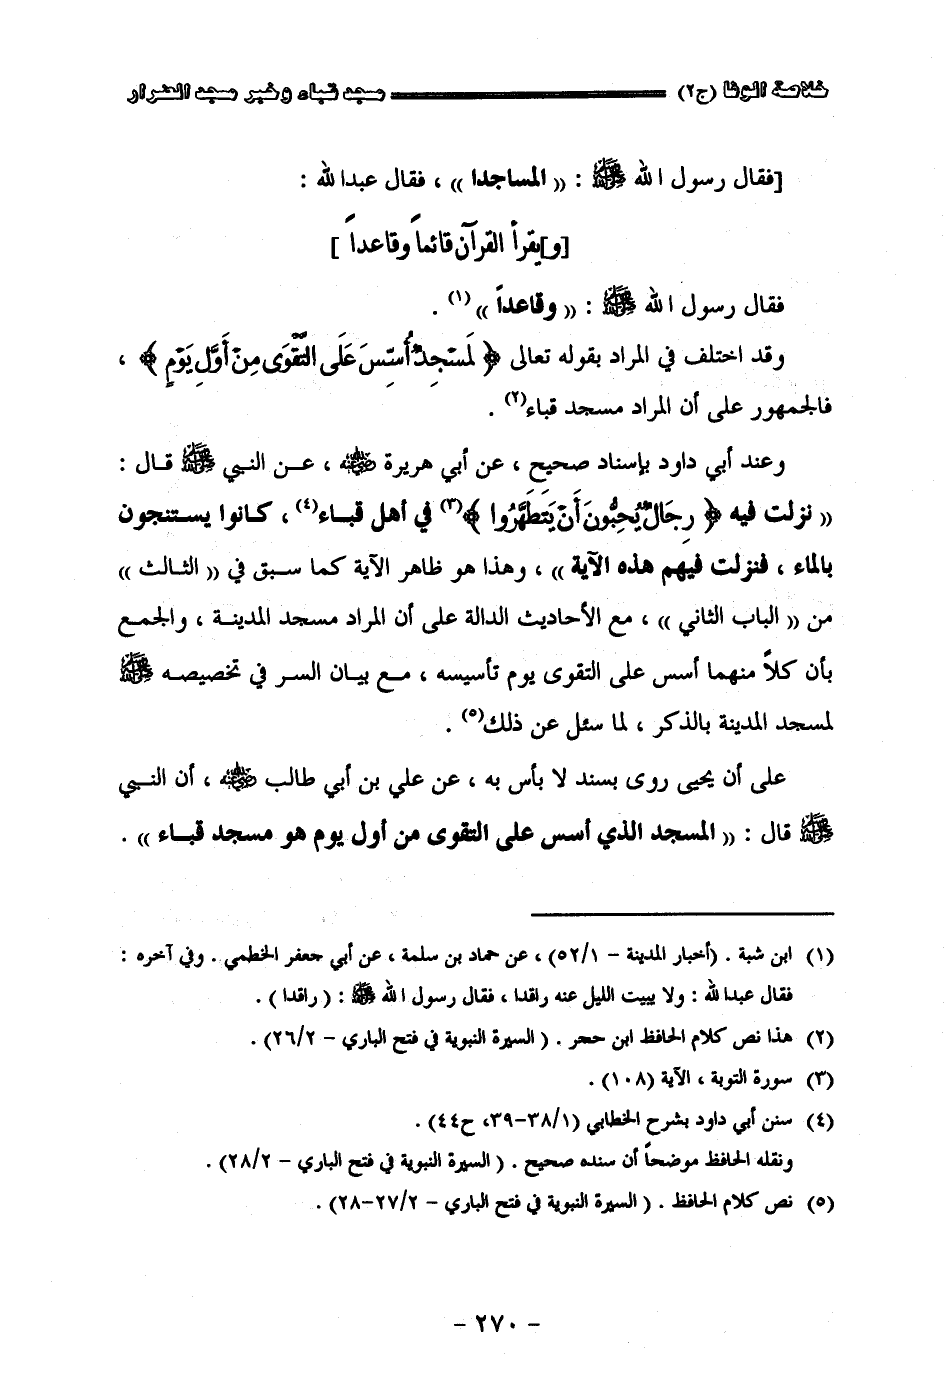 خلاصة الوفا (ج٢) مسجد قباء وخبر مسجد الضرار
[فقال رسول الله ﷺ : (( المساجدا )) ، فقال عبدالله :
[و]يقرأ القرآن قائماً وقاعداً ]
فقال رسول الله ﷺ : (( وقاعداً ))(١) .
وقد اختلف في المراد بقوله تعالى ﴿ لَمَسْجِدٌ أُسِّسَ عَلَى التَّقْوَى مِنْ أَوَّلِ يَوْمٍ ﴾ ،
فالجمهور على أن المراد مسجد قباء(٢) .
وعند أبي داود بإسناد صحيح ، عن أبي هريرة ﵁ ، عن النبي ﷺ قال :
(( نزلت فيه ﴿ رِجَالٌ يُحِبُّونَ أَنْ يَتَطَهَّرُوا ﴾(٣) في أهل قباء(٤) ، كانوا يستنجون
بالماء ، فنزلت فيهم هذه الآية )) ، وهذا هو ظاهر الآية كما سبق في (( الثالث ))
من (( الباب الثاني )) ، مع الأحاديث الدالة على أن المراد مسجد المدينة ، والجمع
بأن كلاً منهما أسس على التقوى يوم تأسيسه ، مع بيان السر في تخصيصه ﷺ
لمسجد المدينة بالذكر ، لما سئل عن ذلك(٥) .
على أن يحيى روى بسند لا بأس به ، عن علي بن أبي طالب ﵁ ، أن النبي
ﷺ قال : (( المسجد الذي أسس على التقوى من أول يوم هو مسجد قباء )) .
(١) ابن شبة . (أخبار المدينة – ٥٢/١) ، عن حماد بن سلمة ، عن أبي جعفر الخطمي . وفي آخره :
فقال عبدالله : ولا يبيت الليل عنه راقدا ، فقال رسول الله ﷺ : ( راقدا ) .
(٢) هذا نص كلام الحافظ ابن حجر . ( السيرة النبوية في فتح الباري – ٢٦/٢) .
(٣) سورة التوبة ، الآية (١٠٨) .
(٤) سنن أبي داود بشرح الخطابي (٣٨/١–٣٩، ح٤٤) .
ونقله الحافظ موضحاً أن سنده صحيح . ( السيرة النبوية في فتح الباري – ٢٨/٢) .
(٥) نص كلام الحافظ . ( السيرة النبوية في فتح الباري – ٢٧/٢–٢٨) .
– ٢٧٠ –